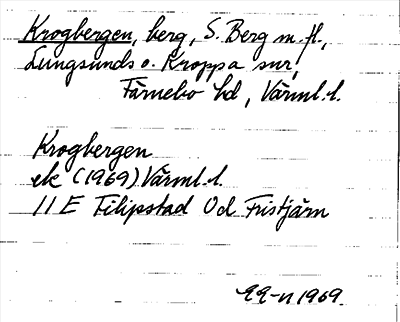 Krogbergen, berg, S. Berg m. fl.,
Lungsunds o. Kroppa snr,
Färnebo hd, Värml. l.
Krogbergen
ek (1969) Värml. l.
11 E Filipstad 0d Fristjärn
1969.